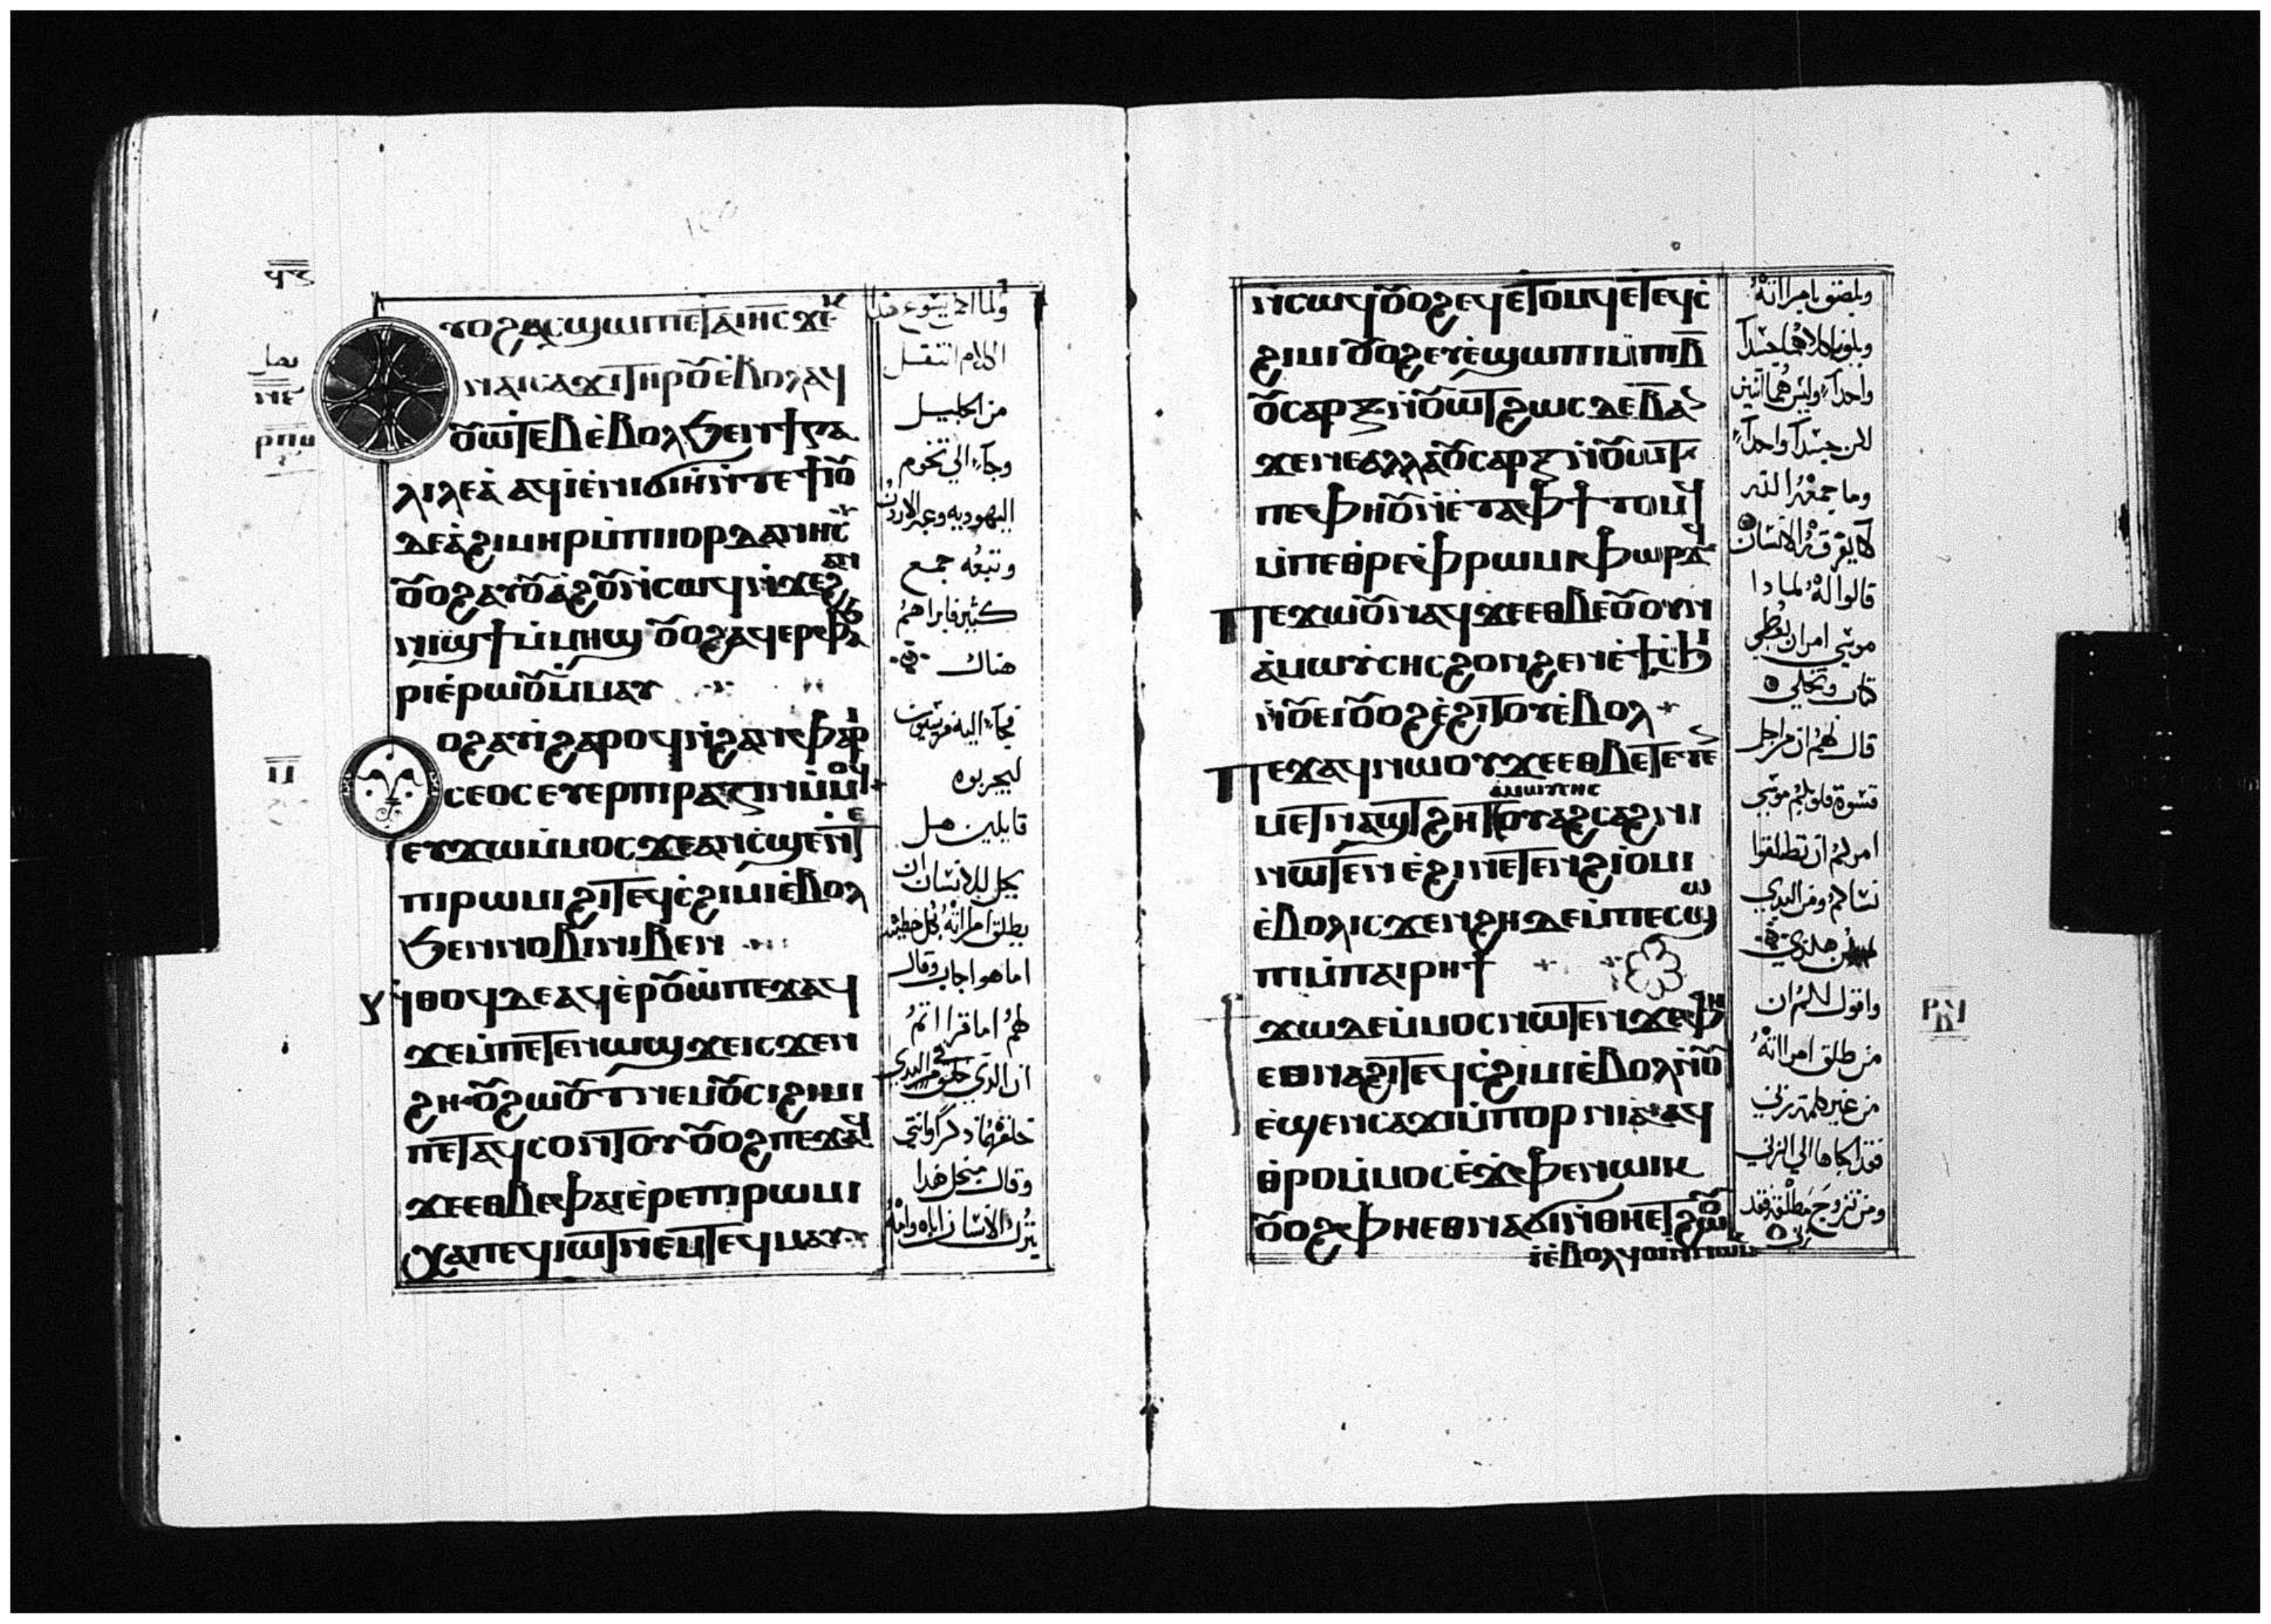 ⲟⲩⲟϩ ⲁⲥϣⲱⲡⲓ ⲉⲧⲁ ⲓⲏⲥ ϫⲉⲕ
ⲛⲁⲓⲥⲁϫⲓ ⲧⲏⲣⲟⲩ ⲉⲃⲟⲗ ⲁϥ
ⲟⲩⲱⲧⲉⲃ ⲉⲃⲟⲗ ϧⲉⲛ ϯⲅⲁ
ⲗⲓⲗⲉⲁ ⲁϥⲓ ⲉⲛⲓϭⲓⲏ ⲛⲧⲉ ϯⲓⲟⲩ
ⲇⲉⲁ ϩⲓⲙⲏⲣ ⲙⲡⲓⲓⲟⲣⲇⲁⲛⲏⲥ
ⲟⲩⲟϩ ⲁⲩⲟⲩⲁϩⲟⲩ ⲛⲥⲱϥ ⲛϫⲉϩⲁⲛ
ⲛⲓϣϯ ⲙⲙⲏϣ ⲟⲩⲟϩ ⲁϥⲉⲣⲫⲁϧ
ⲣⲓ ⲉⲣⲱⲟⲩ ⲙⲙⲁⲩ
ⲟⲩⲟϩ ⲁⲩⲓ ϩⲁⲣⲟϥ ⲛϫⲉ ϩⲁⲛⲫⲁⲣⲓ
ⲥⲉⲟⲥ ⲉⲩⲉⲣⲡⲓⲣⲁⲍⲓⲛ ⲙⲙⲟϥ
ⲉⲩϫⲱ ⲙⲙⲟⲥ ϫⲉ ⲁⲛ ⲥϣⲉ ⲛⲧⲉ
ⲡⲓⲣⲱⲙⲓ ϩⲓ ⲧⲉϥⲥϩⲓⲙⲓ ⲉⲃⲟⲗ
ϧⲉⲛ ⲛⲟⲃⲓ ⲛⲓⲃⲉⲛ
ⲛⲑⲟϥ ⲇⲉ ⲁϥⲉⲣⲟⲩⲱ ⲡⲉϫⲁϥ
ϫⲉ ⲙⲡⲉⲧⲉⲛⲱϣ ϫⲉ ⲓⲥϫⲉⲛ
ϩⲏ ⲟⲩϩⲱⲟⲩⲧ ⲛⲉⲙ ⲟⲩⲥϩⲓⲙⲓ
ⲡⲉⲧⲁϥⲥⲟⲛⲧⲟⲩ ⲟⲩⲟϩ ⲡⲉϫⲁϥ
ϫⲉ ⲉⲑⲃⲉ ⲫⲁⲓ ⲉⲣⲉ ⲡⲓⲣⲱⲙⲓ
ⲭⲁ ⲡⲉϥⲓⲱⲧ ⲛⲉⲙ ⲧⲉϥⲙⲁⲩ
ولما اكمل يسوع هذا
الكلام انتقل
من الجليل
وجاء الي تخوم
اليهوديه وعبر الاردن
وتبعه جمع
كثير فابراهم
هناك
فجاء اليه فريسيون
ليجربوه
قايلين هل
يحل للانسان ان
يطلق امراته بكل خطيئه
اما هو اجاب وقال
لهم اما قراتم
ان الذي خلق في البدي
خلقهما ذكرا وانثي
وقال من اجل هذا
يترك الانسان اباه وامه
ⲛⲥⲱϥ ⲟⲩⲟϩ ⲉϥⲉⲧⲟⲙϥ ⲉⲧⲉϥⲥ
ϩⲓⲙⲓ ⲟⲩⲟϩ ⲉⲩⲉϣⲱⲡⲓ ⲙⲡⲓⲃ
ⲟⲩⲥⲁⲣⲝ ⲛⲟⲩⲱⲧ ϩⲱⲥ ⲇⲉ ⲃ ⲁⲛ
ϫⲉ ⲛⲉ ⲁⲗⲗⲁ ⲟⲩⲥⲁⲣⲝ ⲛⲟⲩⲱⲧ
ⲡⲉ ⲫⲏ ⲟⲩⲛ ⲉⲧⲁ ⲫϯ ⲧⲟⲙϥ
ⲙⲡⲉⲑⲣⲉ ⲫⲣⲱⲙⲓ ⲫⲟⲣϫϥ
ⲡⲉϫⲱⲟⲩ ⲛⲁϥ ϫⲉ ⲉⲑⲃⲉ ⲟⲩ ⲟⲩⲛ
ⲁ ⲙⲱⲩⲥⲏⲥ ϩⲟⲛϩⲉⲛ ⲉϯ ⲥϧⲓ
ⲛⲟⲩⲉⲓ ⲟⲩⲟϩ ⲉϩⲓⲧⲟⲩ ⲉⲃⲟⲗ
ⲡⲉϫⲁϥ ⲛⲱⲟⲩ ϫⲉ ⲉⲑⲃⲉ ⲧⲉⲧⲉⲛ
ⲙⲉⲧⲛⲁϣⲧϩⲏⲧ ⲁ ⲙⲱⲩⲥⲏⲥ ⲟⲩⲁϩⲥⲁϩⲛⲓ
ⲛⲱⲧⲉⲛ ⲉϩⲓ ⲛⲉⲧⲉⲛϩⲓⲟⲙⲓ
ⲉⲃⲟⲗ ⲓⲥϫⲉⲛ ϩⲏ ⲇⲉ ⲙⲡⲉⲥϣⲱ
ⲡⲓ ⲙⲡⲁⲓⲣⲏϯ
ϯϫⲱ ⲇⲉ ⲙⲙⲟⲥ ⲛⲱⲧⲉⲛ ϫⲉ ⲫⲏ
ⲉⲑⲛⲁϩⲓ ⲧⲉϥⲥϩⲓⲙⲓ ⲉⲃⲟⲗ ⲛⲟⲩ
ⲉϣⲉⲛ ⲥⲁϫⲓ ⲙⲡⲟⲣⲛⲓⲁ ⲁϥ
ⲑⲣⲟ ⲙⲙⲟⲥ ⲉϫⲫⲉ ⲛⲱⲓⲕ
ⲟⲩⲟϩ ⲫⲏ ⲉⲑⲛⲁϭⲓ ⲛⲑⲏ ⲉⲧϩⲱⲟⲩ
ⲓ ⲉⲃⲟⲗ ϥⲟⲓ ⲛⲛⲱⲓⲕ
ويلصق بامراته
ويكونا كلاهما جسدا
واحدا وليس هما اثنين
لكن جسدا واحدا
وما جمعه الله
لا يفرقه الانسان
قالوا له لماذا
موسي امر ان يعطي
كتاب وتخلي
قال لهم ان من اجل
قسوة قلوبكم موسي
امركم ان تطلقوا
نساكم ومن البدي
لم يكن هكذي
واقول لكم ان
من طلق امراته
من غير كلمة زني
فقد الجاها الي الزني
ومن تزوج مطلقة فقد
زني